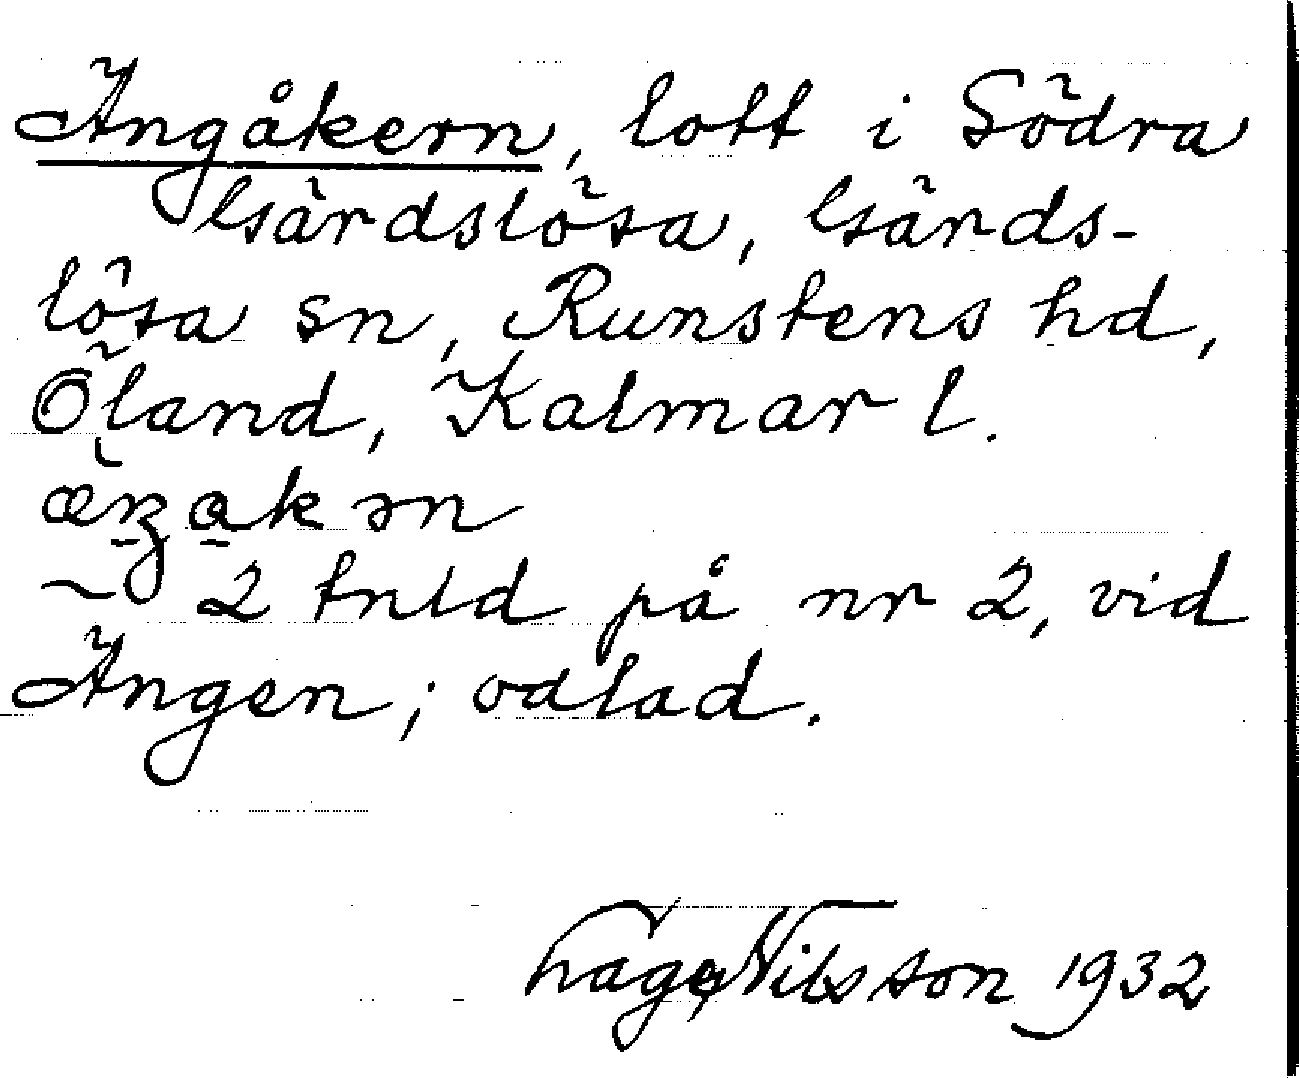 Ängåkern, lott i Södra
Gärdslösa, Gärds-
lösa sn, Runstens hd,
Öland, Kalmar l.
2 tnld på nr 2, vid
Ängen; odlad.
Lage Nilsson 1932